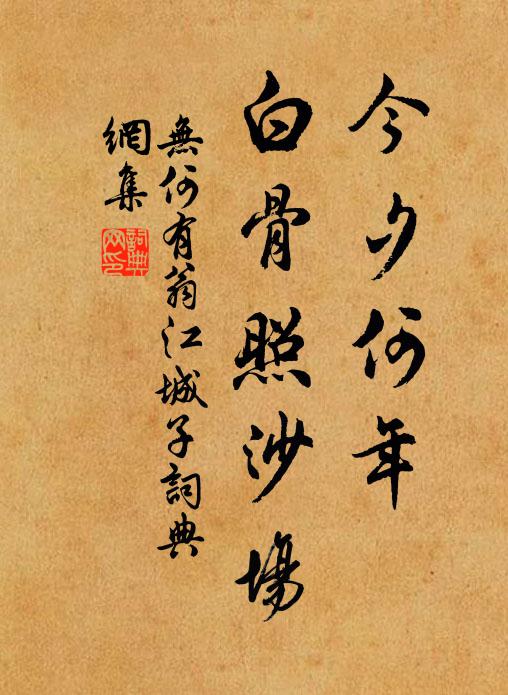 今夕何年
白骨照沙場
無何有翁江城子詞典
網集
詞典網印